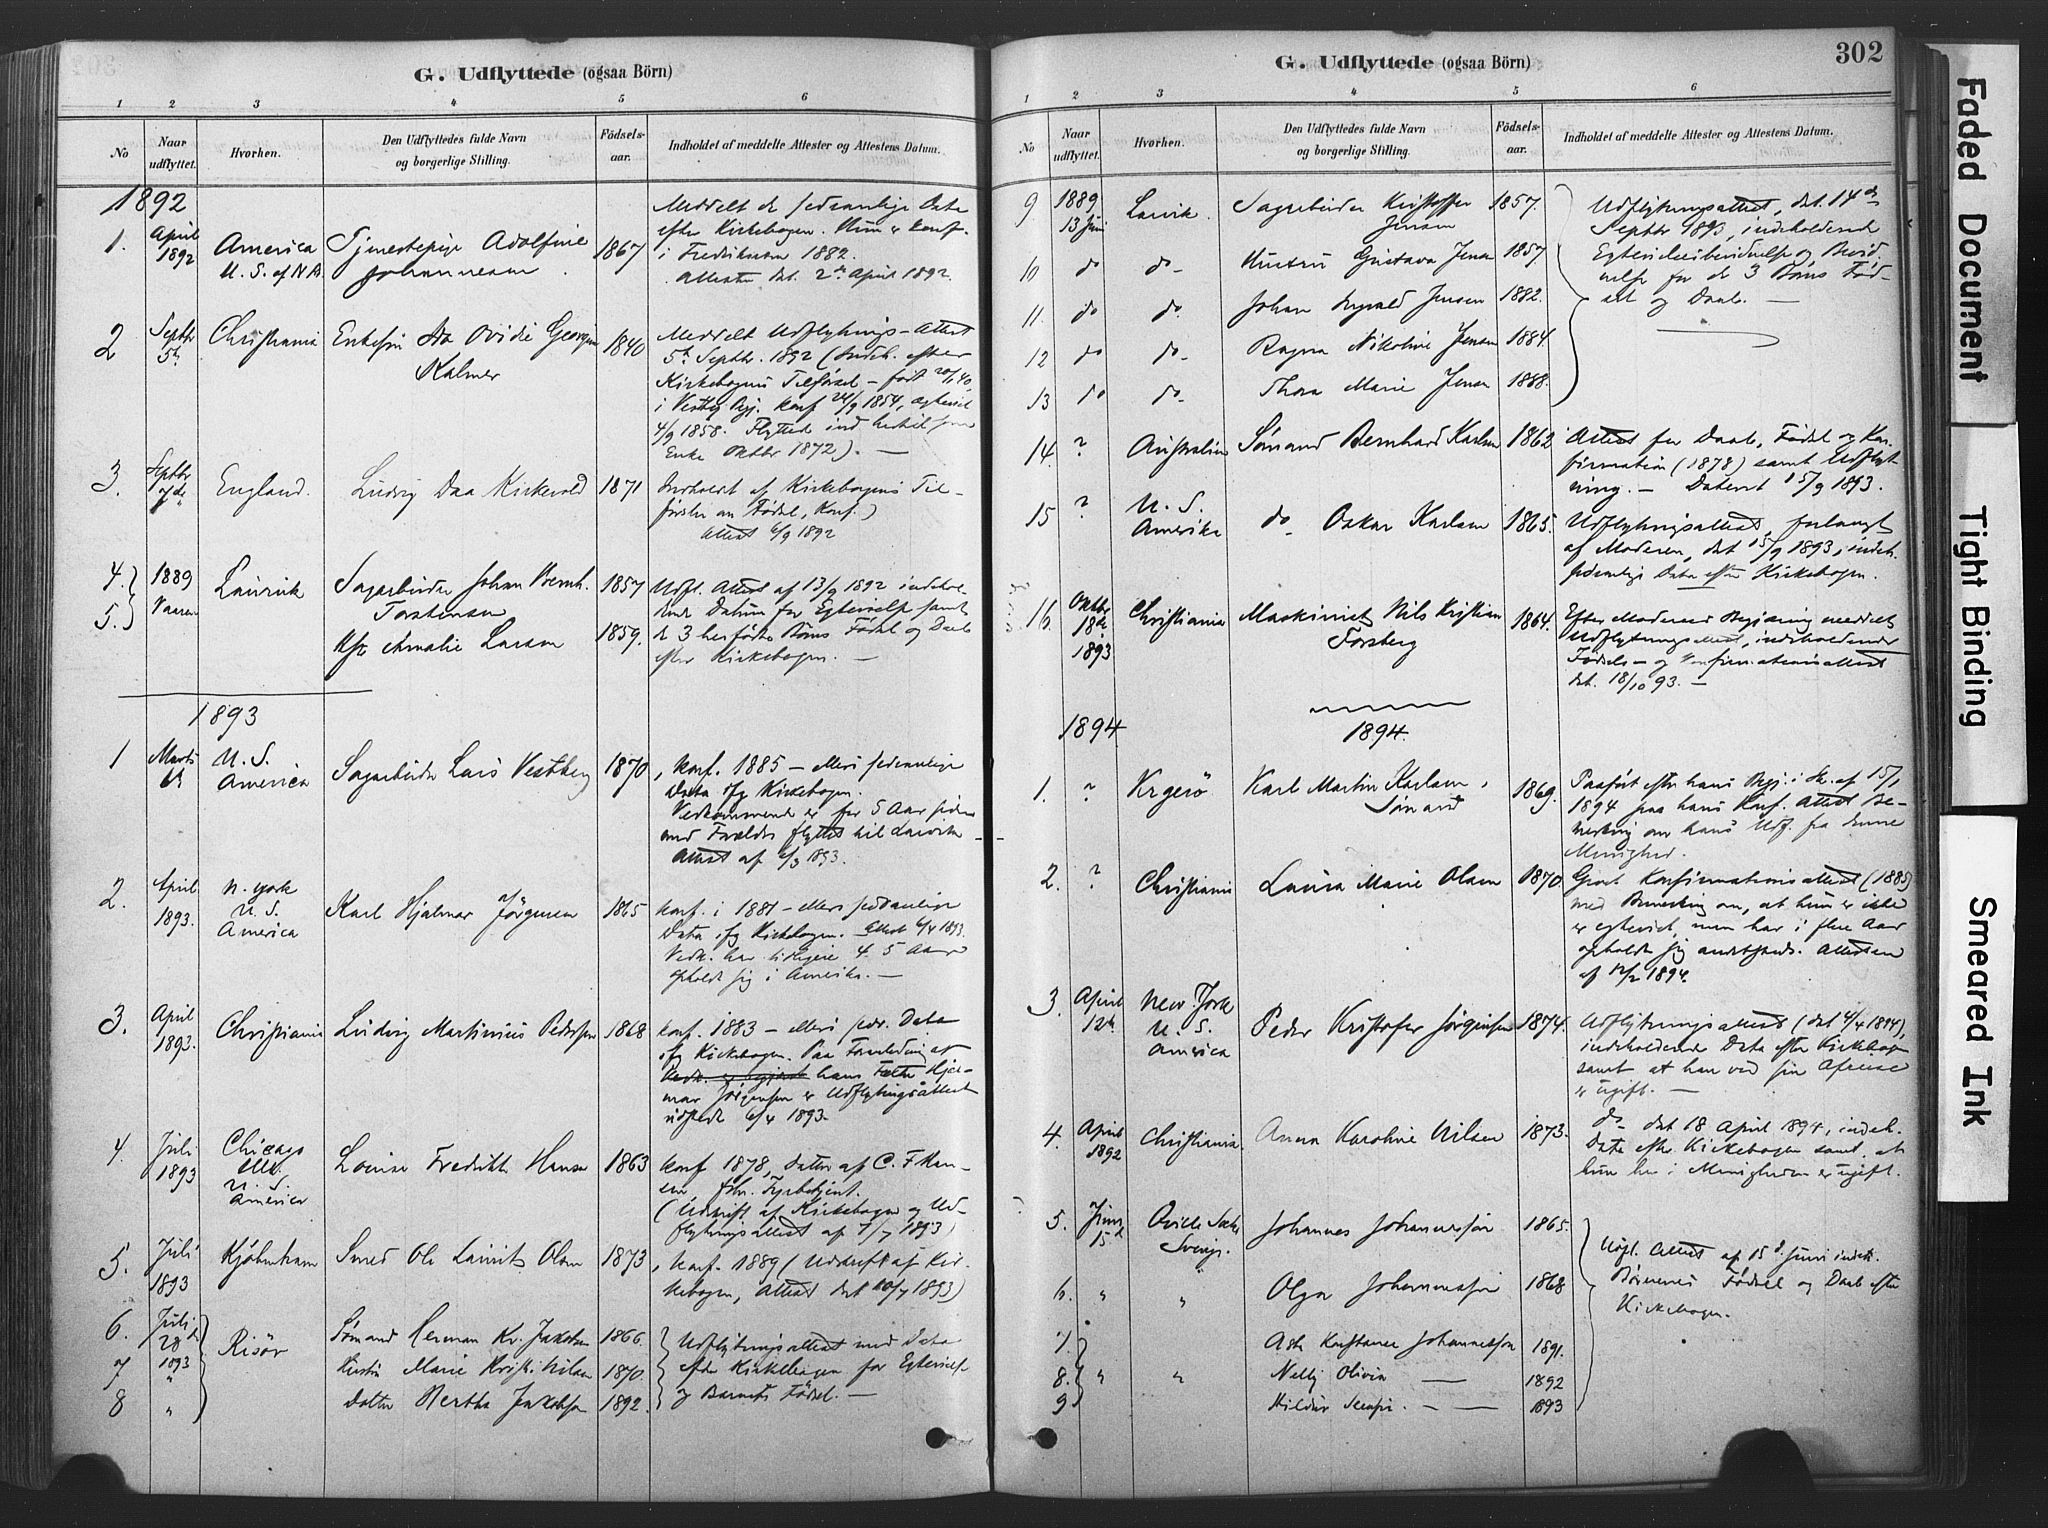 G. Udflyttede (ogsaa Börn)
1 2 3 4 5 6
No
Naar udflyttet.
Hvorhen.
Den Udflyttedes fulde Navn
og borgerlige Stilling.
Födsels-
aar.
Indholdet af meddelte Attester og Attestens Datum.
1892
1. April 1892
America
U. S. af N.A.
Tjenestepige Adolfine
Johannesen
1867
Meddelt de sedvanlige Data
efter Kirkebogen. Hun er konf.
i Fredriksværn 1882.
Attesten dat. 2den April 1892.
2 Septbr 5te
Christiania
Enkefru Ida Ovidie Georgine
Kalmer
1840
Meddelt Udflytnings-Attest
5te Septbr. 1892 (Indeh. efter
Kirkebogens Tilførsel - født 20/1 40,
konf 24/9 1854, egteviet
4/9 1858. Flyttede ind hertil som
Enke Oktbr 1872). —
3. Septbr 7de
England.
Ludvig Daa Kirkevold
1871
Indholdt af Kirkebogens Til-
førsler om Fødsel, Konf.)
Attest 6/9 1892
4. 5. 1889 Vaaren
Laurvik
Sagarbeider Johan Bernh.
Torstensen
1857
Hst. Amalie Larsen
1859.
Udfl. Attest af 13/9 1892 indehol-
dende Datum for Egtevielse samt
de 3 herfødte Børns Fødsel og Daab
efter Kirkebogen. —
1893
1 Marts
U. S.
America
Sagarbeider Lars Vestberg
1870
, konf. 1885 — Ellers sedvanlige
Data ifg Kirkebogen.
Vedkommende er for 5 Aar siden
med Forældre flyttet til Laurvik —
Attest af 6/3 1893.
2. April 1893.
N. York
U. S.
America
Karl Hjalmar Jörgensen
1865
konf. i 1881 — Ellers sedvanlige
Data ifg Kirkebogen. Attest 6/4 1893.
Vedk. har tidligere 4-5 Aar
opholdt sig i Amerika. —
3. April 1893.
Christiania
Ludvig Martinius Pedersen
1868
konf. 1883 — Ellers sedv. Data
ifg Kirkebogen. Paa Foranledning af
hans Fætter Hjal-
mar Jörgensen er Udflytningsattest
udstedt 6/4 1893.
4. Juli 1893
Chicago
Ill.
U. S.
America
Louise Fredrikke Hansen
1863
konf 1878, Datter af C. F. Han-
sen, fhv. Fyrbetjent.
(Udskrift af Kirkebogen og Ud-
flytningsattest af 7/7 1893)
5. Juli 1893
Kjøbenhavn
Smed Ole Laurits Olsen
1873
, konf. 1889 (Udskrift af Kir-
kebogen, Attest dat 20/7 1893)
6. Juli 28de 1893
Risør
Sømand Herman Kr. Jakobsen
1866.
Udflytningsattest med Data
7 "
Hustru Marie Kristi. Nilsen
1870.
efter Kirkebogen for Egtevielse
8 "
Datter Bertha Jakobsen
1892.
og Barnets Fødsel. —
G. Udflyttede (ogsaa Börn)
302
1 2 3 4 5 6
No
Naar udflyttet.
Hvorhen.
Den Udflyttedes fulde Navn
og borgerlige Stilling.
Födsels-
aar.
Indholdet af meddelte Attester og Attestens Datum.
9 1889 13 Juni
Larvik.
Sagarbeider Kristoffer
Jensen
1857.
Udflytningsattest, dat. 14de
Septbr 1893, indeholdende
10 do do-
Hustru Gustava Jensen
1857.
for de 3 Børns Fød-
sel og Daab. —
11. do do.
Johan Jensen
1882.
12 do do-
Ragna Nikoline Jensen
1884.
13 do do-
Thora Marie Jensen
1888.
14. ?
Australien
Sømand Bernhard Karlsen
1862
Attest for Daab, Fødsel og Kon-
firmation (1878) samt Udflyt-
ning. — Dateret 15/9 1893.
15 ?
U. S.
Amerika
do- Oskar Karlsen
1865.
Udflytningsattest, forlangt
af Moderen, dat 15/9 1893, indeh.
sedvanlige Data efter Kirkebogen.
16 Oktbr 18de 1893
Christiania
Maskinist Nils Kristian
Forsberg
1864.
Efter Moderens Begjæring meddelt
Udflytningsattest, indeholdende
Fødsels- og Konfirmationsattest
dat. 18/10 93. —
1894
1894.
1. ?
Krgerö
Karl Martin Karlsen,
Sømand
1869.
Paaført efter hans Begj. i Sk. af 15/1
1894 paa hans Konf. Attest Be-
mærkning om hans Udfl. fra denne
Menighed.
2. ?
Christiania
Laura Marie Olsen
1870
Givet Konfirmationsattest (1885)
med Bemerkning om, at hun er ikke
er egteviet, men har i flere Aar
opholdt sig andetsteds. Attesten
af 12/2 1894.
3. April 12te
New. York
U. S.
America
Peder Kristofer Jørgensen
1874.
Udflytningsattest (dat 4/4 1894),
indeholdende Data efter Kirkebogen
samt at han ved sin Afreise
er ugift. —
4. April 1892
Christiania.
Anna Karoline Nilsen
1873.
do- dat 18 April 1894, indeh.
Data efter Kirkebogen samt at
hun her i Menigheden er ugift.
5. Juni 15d
Sverige.
Johannes Johannessøn
1865.
Udfl. Attest af 15d Juni indeh.
Børnenes Fødsel og Daab efter
Kirkebogen.
6. " "
Olga Johannessøn
1868
7.
Asta Konstanse Johannessøn
1891.
8. " "
Nelly Olivia —
1892
9
Hildur — —
1893
Faded Document
Tight Binding
Smeared Ink